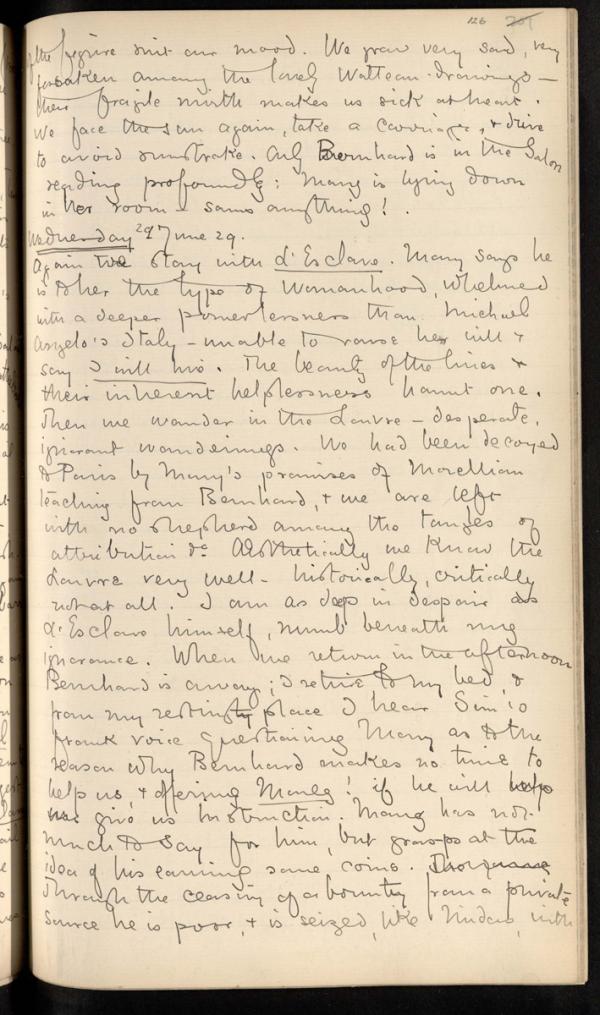 126 201
of the figure suit our mood. We grow very sad, very
forsaken among the lovely Watteau-drawings –
their fragile mirth makes us sick at heart.
We face the sun again, take a carriage, & drive
to avoid sunstroke. Only Bernhard is in the Salon
reading profoundly: Mary is lying down
in her room – sans anything!.
Wednesday 29 June 29.
Again we stay with L'Esclave. Mary says he
is to her the type of Womanhood, whelmed
with a deeper powerlessness than Michael
Angelo's Italy – unable to raise her will &
say I will live. The beauty of the lines &
their inherent helplessness haunt one.
Then we wander in the Louvre – desperate,
ignorant wanderings. We had been decoyed
to Paris by Mary's promises of Morellian
teaching from Bernhard, & we are left
with no shepherd among the tangles of
attribution &c. Aesthetically we know the
Louvre very well – historically, critically
not at all. I am as deep in despair as
L'Esclave himself, numb beneath my
ignorance. When we return in the afternoon
Bernhard is away; I retire to my bed &
from my resting place I hear Sim's
frank voice questioning Mary as to the
reason why Bernhard makes no time to
help us, & offering Money! if he will help
us give us Instruction. Mary has not
much to say for him, but grasps at the
idea of his earning some coins.
Through the ceasing of a bounty from a private
source he is poor, & is seized, like with